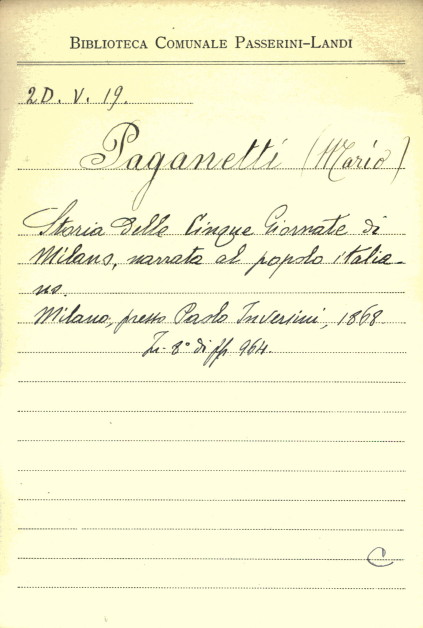 BIBLIOTECA COMUNALE PASSERINI-LANDI
2D. V. 19.
Paganetti (Mario)
Storia delle Cinque Giornate di
Milano, narrata al popolo italia-
no.
Milano, presso Paolo Inversini, 1868.
In-8° di pp 964.
C